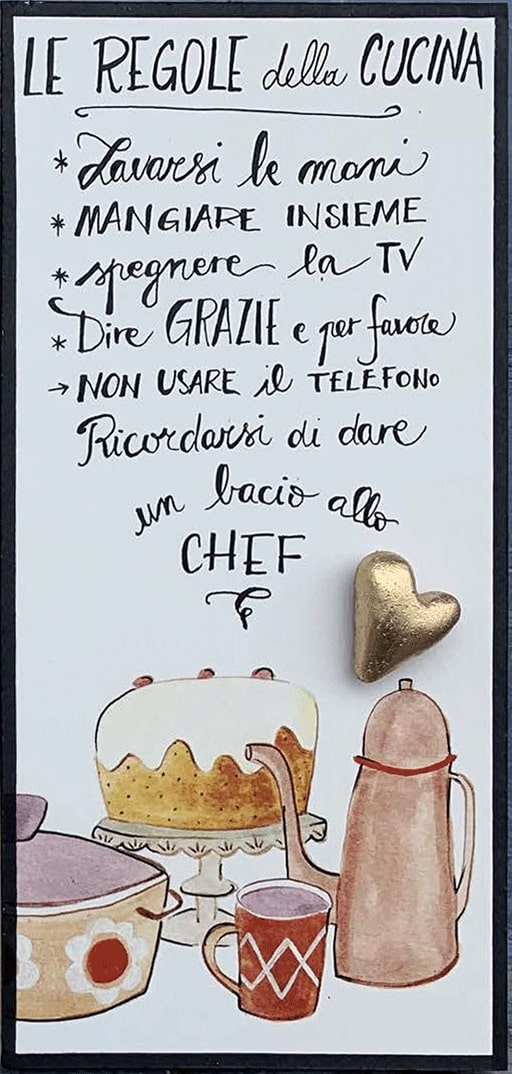 LE REGOLE della CUCINA
* Lavarsi le mani
* MANGIARE INSIEME
* spegnere la TV
* Dire GRAZIE e per favore
→ NON USARE il TELEFONO
Ricordarsi di dare
un bacio allo
CHEF